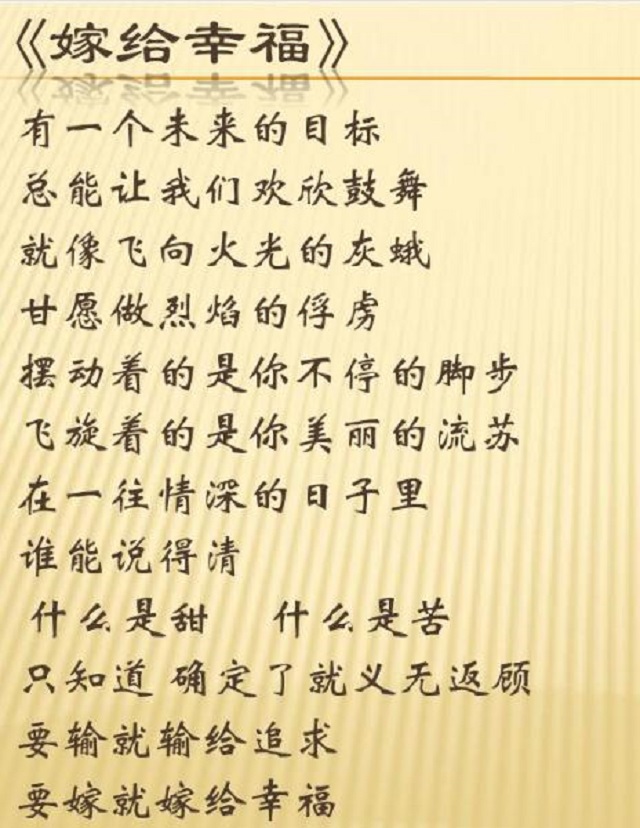 《嫁给幸福》
有一个未来的目标
总能让我们欢欣鼓舞
就像飞向火光的灰蛾
甘愿做烈焰的俘虏
摆动着的是你不停的脚步
飞旋着的是你美丽的流苏
在一往情深的日子里
谁能说得清
什么是甜 什么是苦
只知道 确定了就义无返顾
要输就输给追求
要嫁就嫁给幸福